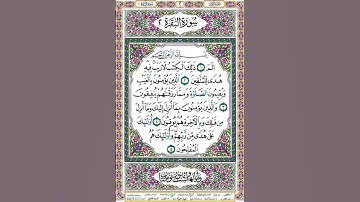 سُورَةُ البَقَرَةِ
بِسْمِ اللَّهِ الرَّحْمَٰنِ الرَّحِيمِ
الٓمٓ ۝ ذَٰلِكَ الْكِتَٰبُ لَا رَيْبَ فِيهِ
هُدًى لِّلْمُتَّقِينَ ۝ الَّذِينَ يُؤْمِنُونَ بِالْغَيْبِ
وَيُقِيمُونَ الصَّلَوٰةَ وَمِمَّا رَزَقْنَٰهُمْ يُنفِقُونَ
۝ وَالَّذِينَ يُؤْمِنُونَ بِمَا أُنزِلَ إِلَيْكَ وَمَا أُنزِلَ
مِن قَبْلِكَ وَبِالْآخِرَةِ هُمْ يُوقِنُونَ ۝ أُولَٰئِكَ
عَلَىٰ هُدًى مِّن رَّبِّهِمْ وَأُولَٰئِكَ هُمُ
الْمُفْلِحُونَ ۝